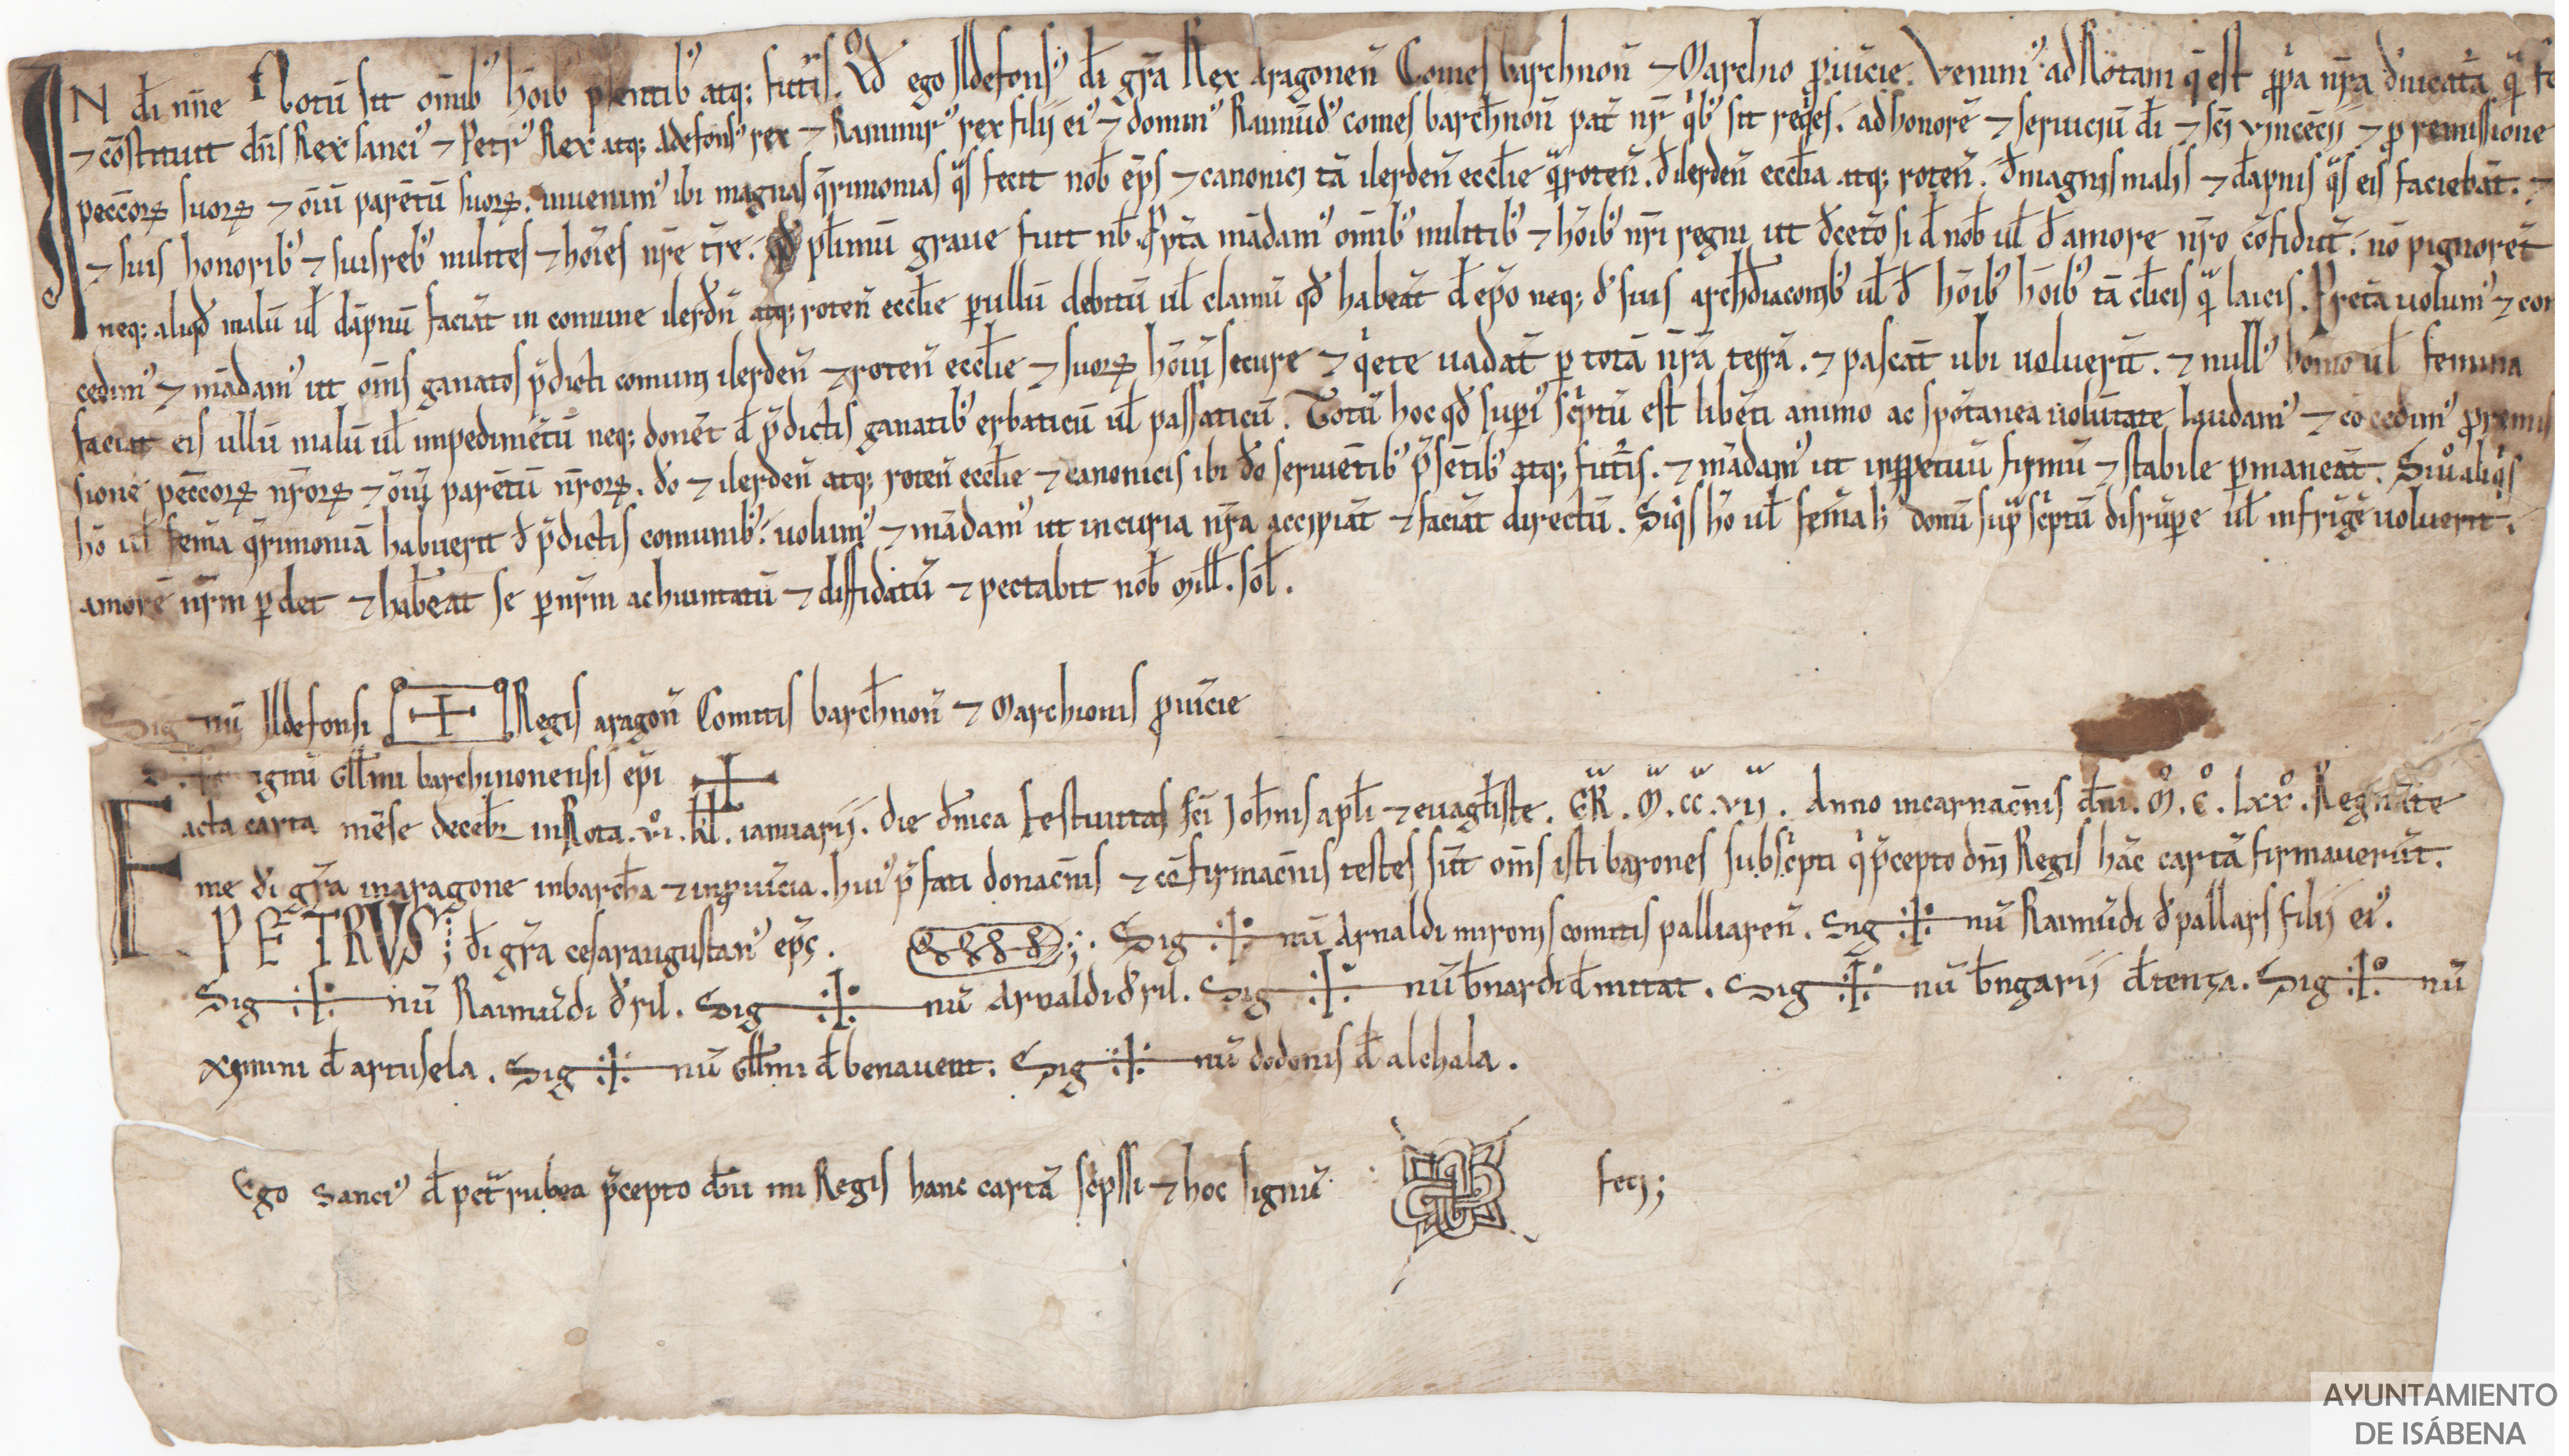 IN dī nn̄e Notū sit om̄ib⁹ hōib⁹ p̄sentib⁹ atq; futuris. Qđ ego Ildefons⁹ dī gr̄a Rex aragonen̄ Comes barchnon̄ ⁊ Marchio ꝓuīcie. Venim⁹ ad Rotam q̄ est ꝓp̄a nr̄a
⁊ cōstituit dn̄s Rex sanci⁹ ⁊ Petr⁹ Rex atq; Adefons⁹ rex ⁊ Ranimir⁹ rex filij ei⁹ ⁊ domin⁹ Raimūd⁹ comes barch̄non̄ pat̄ nr̄ q̇b⁹ sit req̇es. ad honorē ⁊ seruiciū dī ⁊ sc̄i vincēcij ⁊ ꝓ remissione
peccōꝝ suoꝝ ⁊ ōiū parētū suoꝝ. inuenim⁹ ibi magnas q̄rimonias q̄s fecit nob̄ ep̄s ⁊ canonici tā ilerden̄ eccl̄ie q̄ roten̄. đ ilerden̄ eccl̄ia atq; roten̄. đ magnis malis ⁊ dāpnis q̄s eis faciebāt. ⁊
⁊ suis honorib⁹ ⁊ suis reb⁹ milites ⁊ hōīes nr̄e tr̄e. qđ pl̄imū graue fuit nb̄. Ꝓpt̄a mādam⁹ om̄ib⁹ militib⁹ ⁊ hōib⁹ nr̄i regni ut đcetō si đ nob̄ ul̄ đ amore nr̄o cōfidūt. nō pignorēt
neq; aliqđ malū ul̄ dāpnū faciāt in comune ilerđn̄ atq; roten̄ eccl̄ie ꝑ ullū debitū ul̄ clamū qđ habeāt đ ep̄o neq; đ suis archđiaconib⁹ ul̄ đ hōib⁹ hōib⁹ tā cl̄icis q̄ laicis. Pret̄a uolum⁹ ⁊ con
cedim⁹ ⁊ mādam⁹ ut om̄s ganatos p̄dicti comunis ilerden̄ ⁊ roten̄ eccl̄ie ⁊ suoꝝ hōiū secure ⁊ q̇ete uadāt ꝑ totā nr̄ā terrā. ⁊ pascāt ubi uoluerīt. ⁊ null⁹ homo ul̄ femina
faciat eis ullū malū ul̄ impedimētū neq; donēt đ p̄dictis ganatib⁹ erbaticū ul̄ passaticū. Totū hoc qđ superi⁹ sc̄ptū est libēti animo ac spōtanea uolūtate laudam⁹ ⁊ cōcedim⁹ ꝓ remis
sione peccōꝝ nr̄oꝝ ⁊ ōiū parētū nr̄oꝝ. đo ⁊ ilerden̄ atq; roten̄ eccl̄ie ⁊ canonicis ibi đo seruiētib⁹ p̄sētib⁹ atq; futuris. ⁊ mādam⁹ ut in ꝑpetuū firmū ⁊ stabile ꝑmaneāt. Si ů aliq̇s
hō ul̄ femīa q̄rimoniā habuerit đ p̄dictis comunib⁹. uolum⁹ ⁊ mādam⁹ ut in curia nr̄a accipiāt ⁊ faciāt directū. Siq̇s hō ul̄ femīa h̄ donū sup̄ sc̄ptū disrūpe ul̄ infrīgē uoluerit.
amorē nr̄m ꝑdet ⁊ hab̄eat se ꝑ nr̄m achuintatū ⁊ diffidatū ⁊ pectabit nob̄ mill̄. sol̄.
Sig nū Ildefonsi Regis aragon̄ Comitis barch̄non̄ ⁊ Marchionis ꝓuīcie
Signū Gll̄mi barchinonensis ep̄i
Facta carta mēse decēbr̄ in Rota. vi°. kl̄. ianuarij. die dn̄ica festiuitas sc̄i Joh̄nis apl̄i ⁊ euāgl̄iste. ER̄. M. cc. vii. Anno incarnac̄nis dn̄i. M°. C°. Lxx°. Regnāte
me dī gr̄a in aragone in barch̄a ⁊ in ꝓuīcia. hui⁹ p̄fati donac̄nis ⁊ cōfirmac̄nis testes sūt om̄s isti barones subsc̄pti q̇ p̄cepto dn̄i Regis hāc cartā firmauerūt.
PETRVS; dī gr̄a cesaraugustan⁹ ep̄s. Sig nū Arnaldi mironis comitis palliaren̄. Sig nū Raimūdi đ pallars filij ei⁹.
Sig nū Raimūdi đ ril. Sig nū Arnaldi đ ril. Sig nū b̄nardi đ mitat. Sig nū b̄ngarij đ tença. Sig nū
xymini đ artusela. Sig nū Gll̄mi đ benauent. Sig nū dodonis đ alchala.
Ego Sanci⁹ đ pet̄rubea p̄cepto dn̄i mi Regis hanc cartā sc̄pssi ⁊ hoc signū feci;
AYUNTAMIENTO
DE ISÁBENA